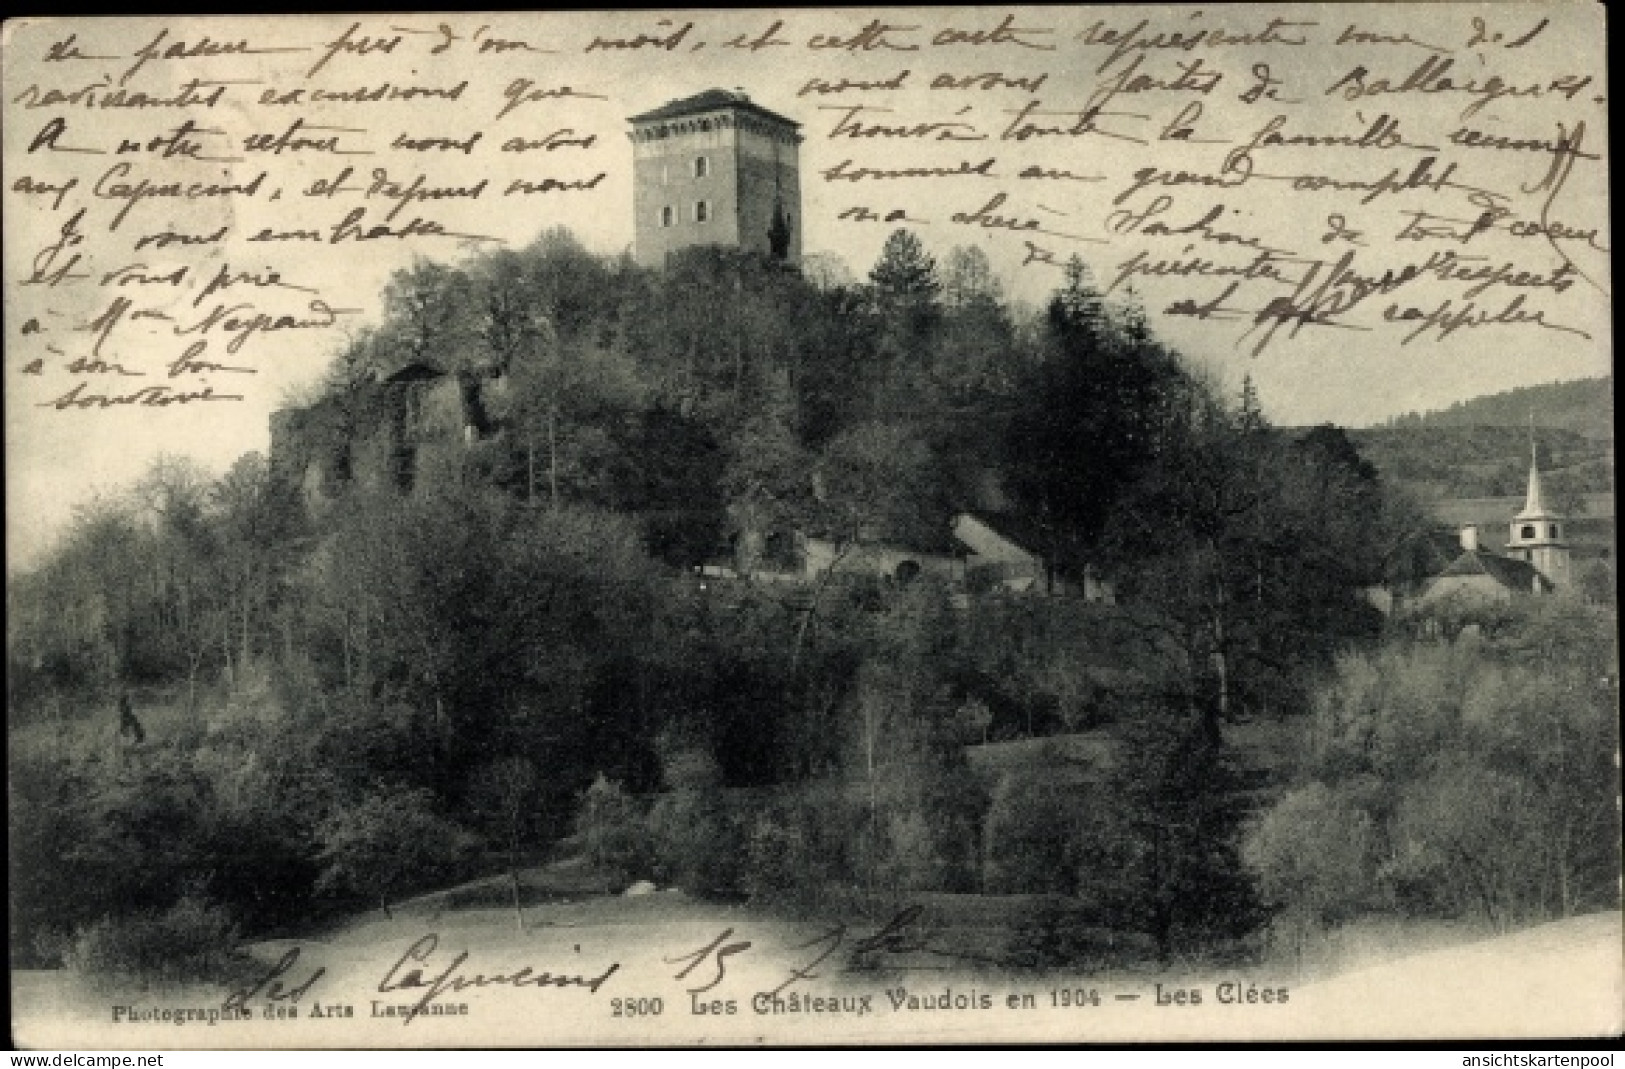 de passer près d'un mois, et cette carte représente une des
ravissantes excursions que nous avons faites de Ballaigues.
A notre retour nous avons trouvé toute la famille réunie
aux Capucins, et depuis nous sommes au grand complet
Je vous embrasse ma chère Nardine de tout coeur
et vous prie de présenter mes respects
à Mme Neyrand et me rappeler
à son bon
souvenir
Les Capucins 15 7bre
Photographie des Arts Lausanne
2800 Les Châteaux Vaudois en 1904 — Les Clées
www.delcampe.net
ansichtskartenpool